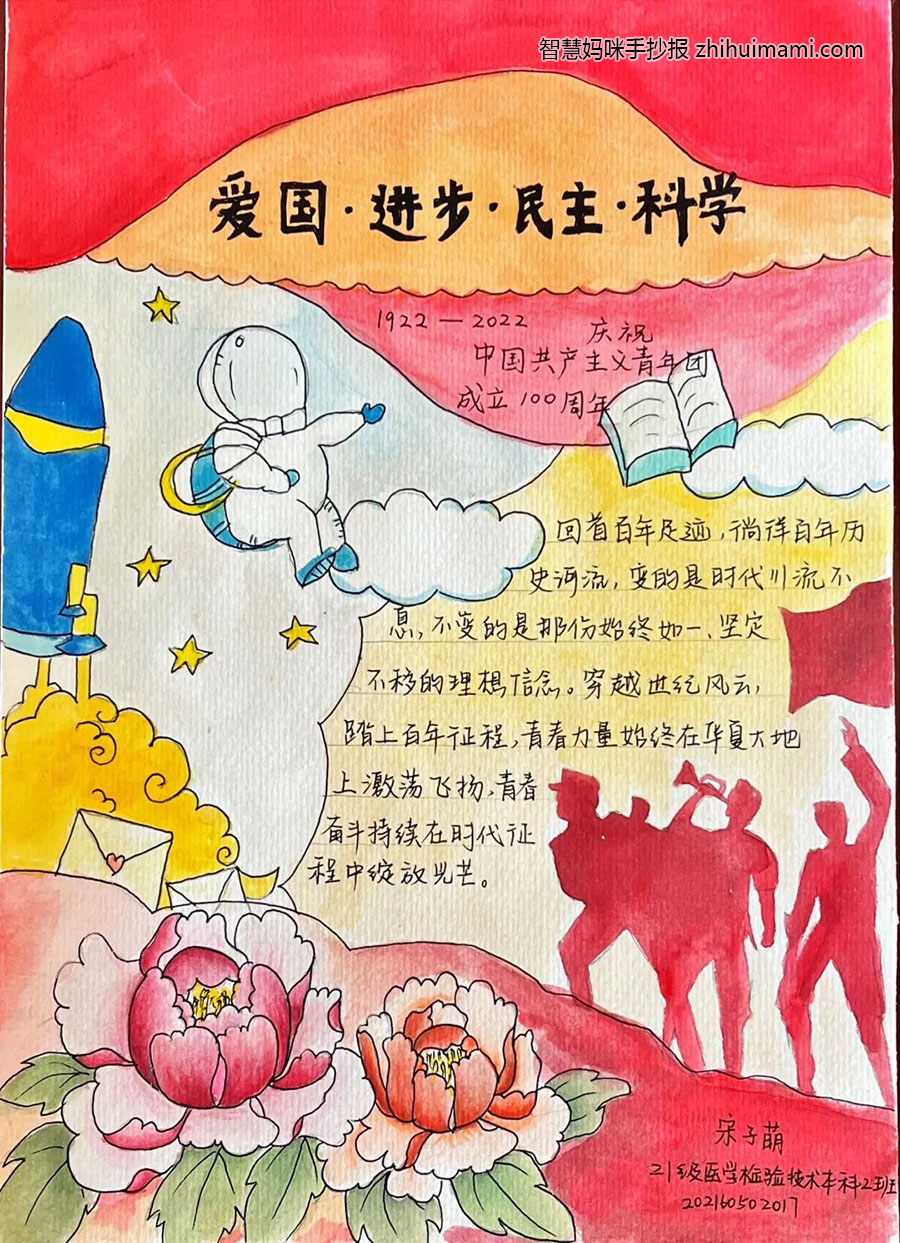 智慧妈咪手抄报 zhihuimami.com
爱国·进步·民主·科学
1922—2022
庆祝
中国共产主义青年团
成立100周年
回首百年足迹，徜徉百年历
史河流，变的是时代川流不
息，不变的是那份始终如一、坚定
不移的理想信念。穿越世纪风云，
踏上百年征程，青春力量始终在华夏大地
上激荡飞扬，青春
奋斗持续在时代征
程中绽放光芒。
宋子萌
21级医学检验技术本科2班
202160502017